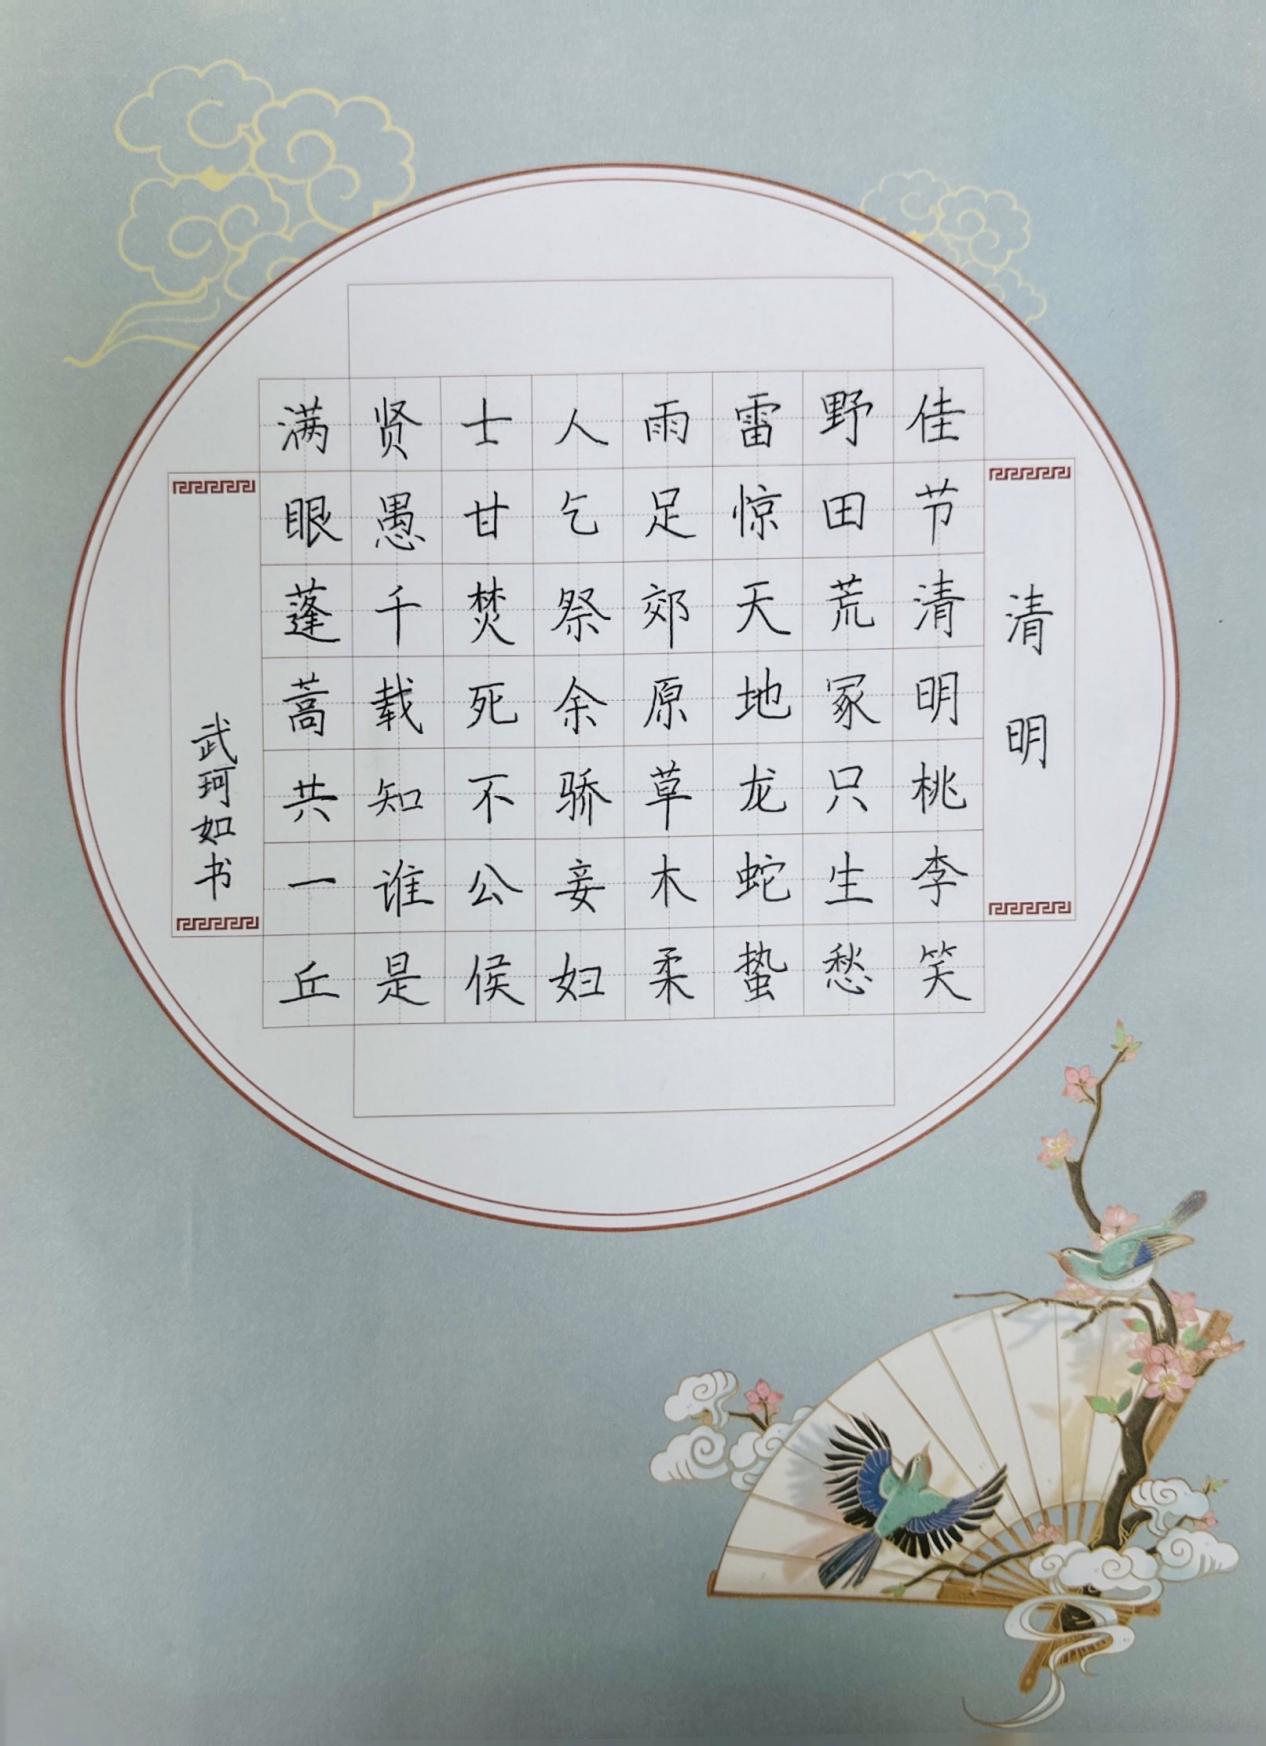 清明
佳节清明桃李笑
野田荒冢只生愁
雷惊天地龙蛇蛰
雨足郊原草木柔
人乞祭余骄妾妇
士甘焚死不公侯
贤愚千载知谁是
满眼蓬蒿共一丘
武珂如书